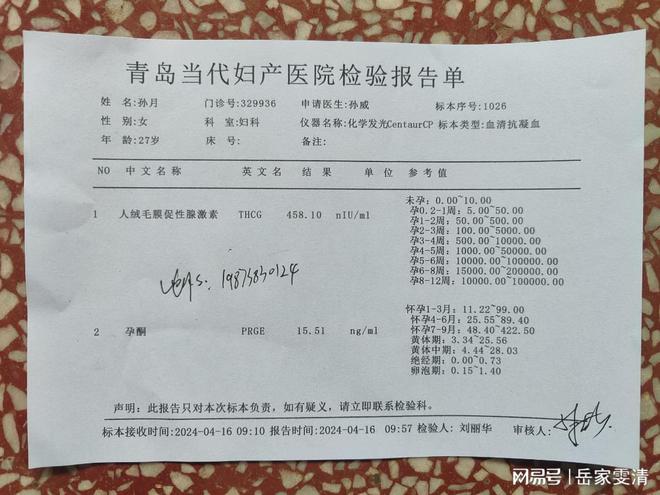 青岛当代妇产医院检验报告单
姓 名:孙月 门诊号:329936 申请医生:孙威 标本序号:1026
性 别:女 科 室:妇科 仪器名称:化学发光CentaurCP 标本类型:血清抗凝血
年 龄:27岁 床 号: 备注:
NO 中文名称 英文名 结 果 单 位 参考值
未孕: 0.00~10.00
1 人绒毛膜促性腺激素 THCG 458.10 nIU/ml 孕0.2-1周: 5.00~50.00
孕1-2周: 50.00~500.00
孕2-3周: 100.00~5000.00
孕3-4周: 500.00~10000.00
孕4-5周: 1000.00~50000.00
孕5-6周: 10000.00~100000.00
孕6-8周: 15000.00~200000.00
孕8-12周: 10000.00~100000.00
19875830124
怀孕1-3月: 11.22~99.00
怀孕4-6月: 25.55~89.40
2 孕酮 PRGE 15.51 ng/ml 怀孕7-9月: 48.40~422.50
黄体期: 3.34~25.56
黄体中期: 4.44~28.03
绝经期: 0.00~0.73
卵泡期: 0.15~1.40
声明: 此报告只对本次标本负责，如有疑义，请立即联系检验科。
标本接收时间:2024-04-16 09:10 报告时间:2024-04-16 09:57 检验人: 刘丽华 审核人:
网易号 | 岳家雯清